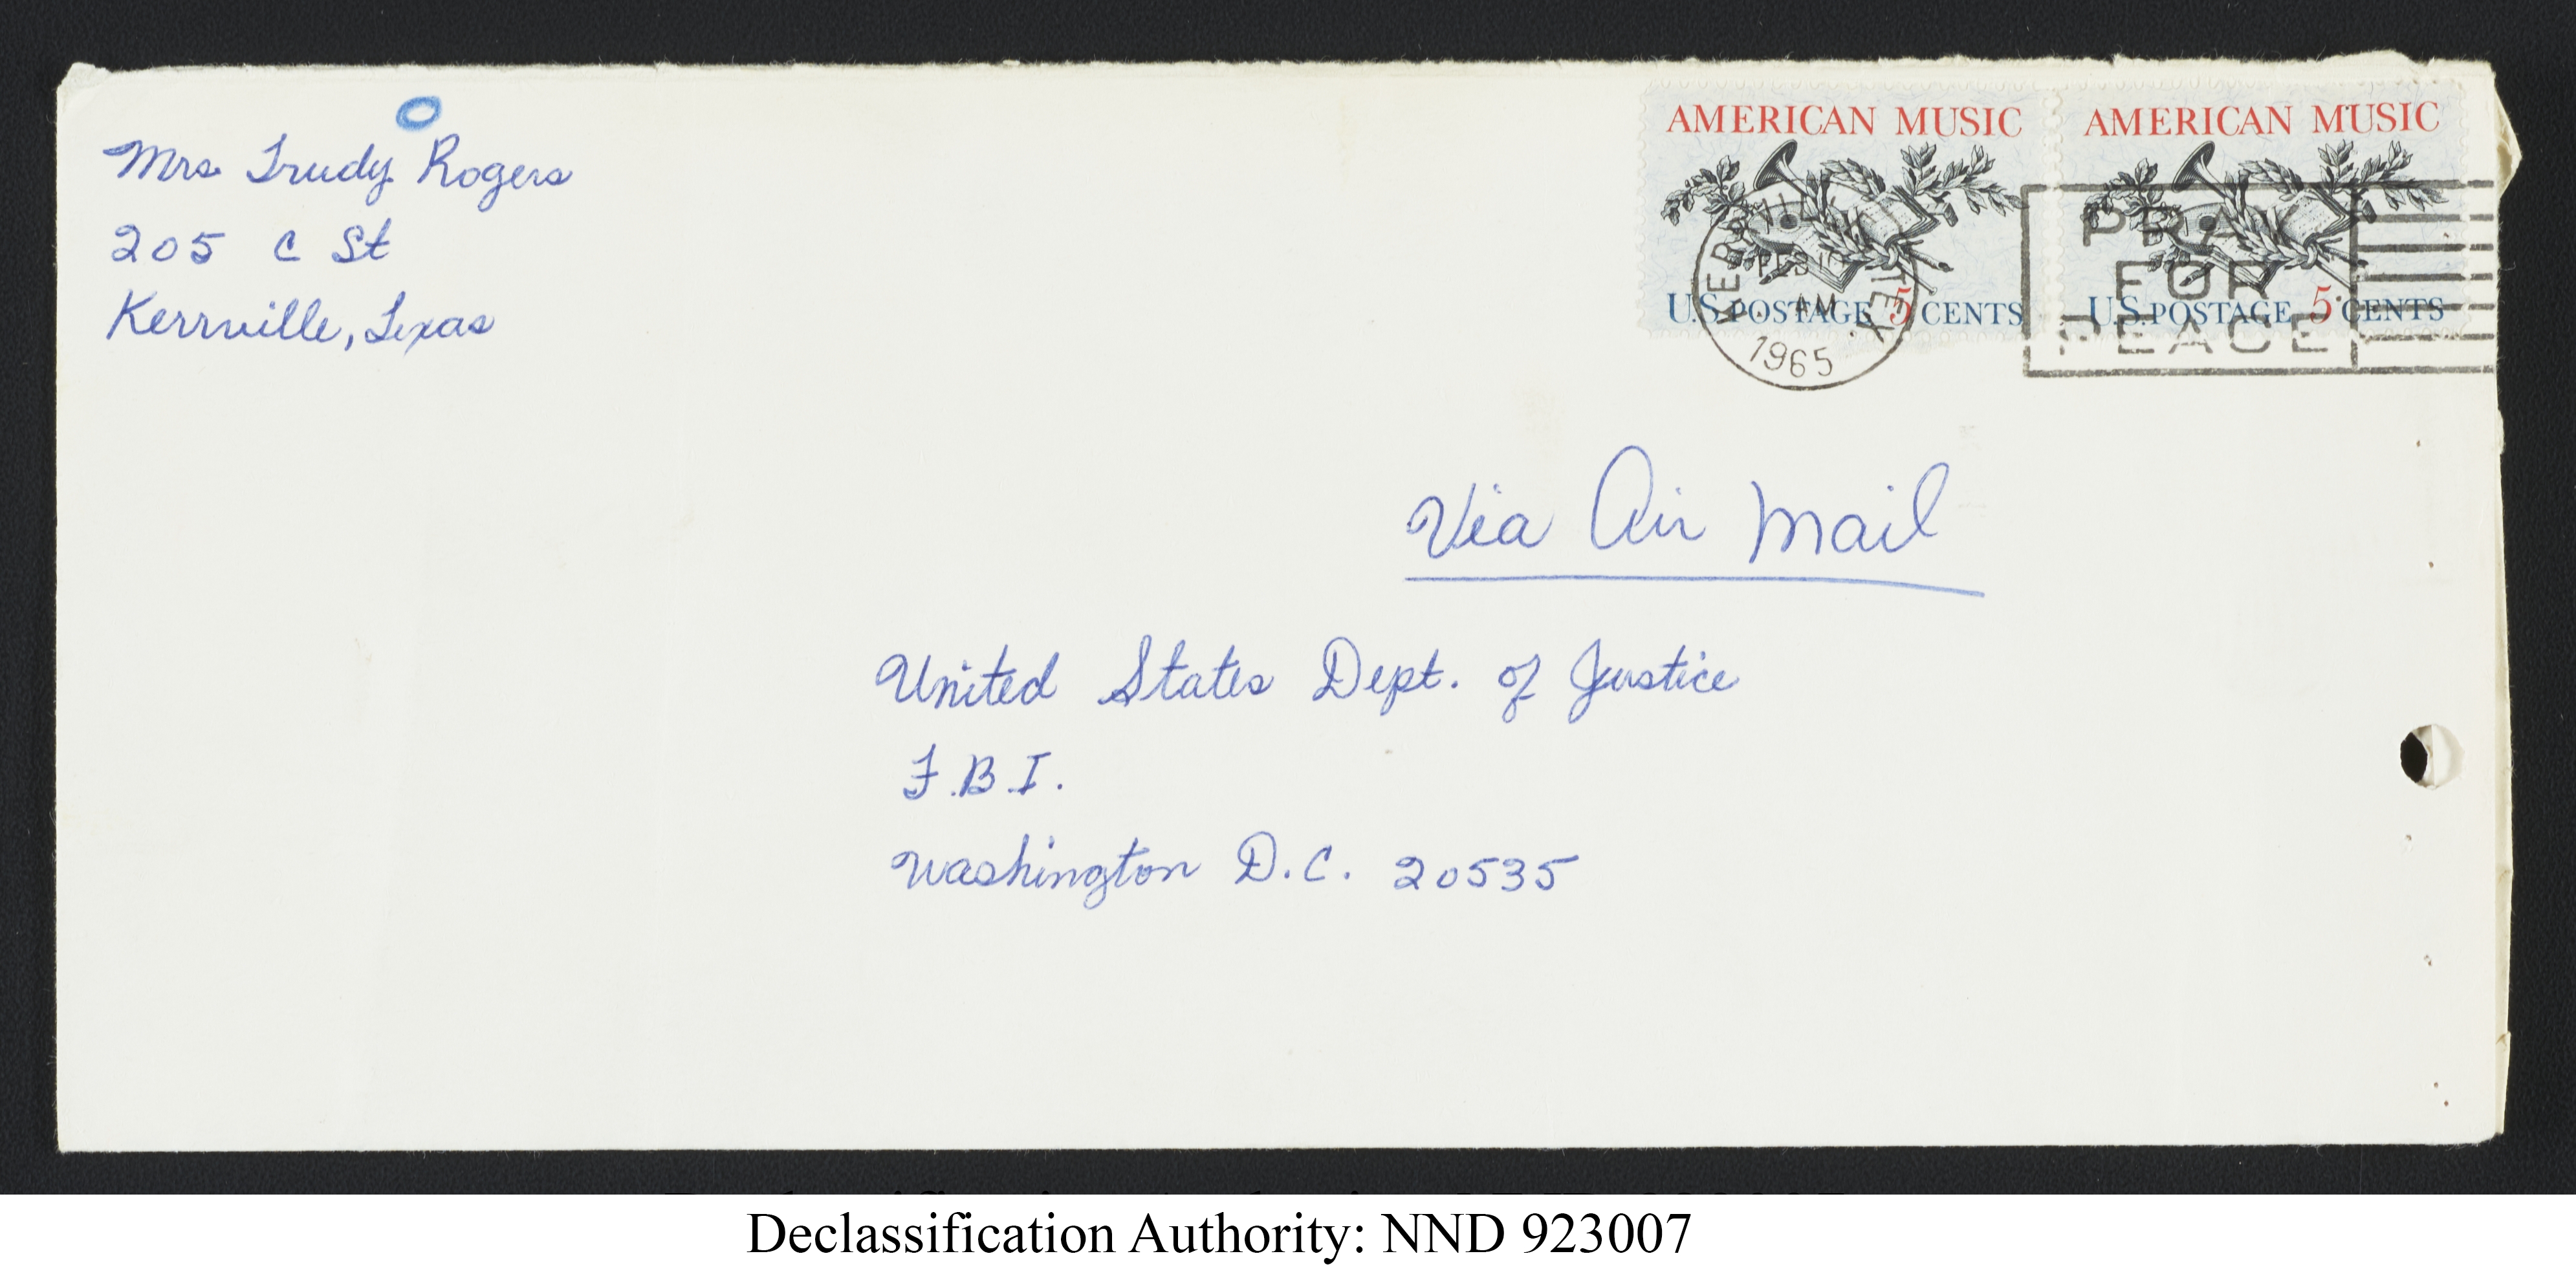 Mrs Trudy Rogers
205 C St
Kerrville, Texas
AMERICAN MUSIC
U.S. POSTAGE 5 CENTS
AMERICAN MUSIC
U.S. POSTAGE 5 CENTS
KERRVILLE TEX.
FEB 10
AM
1965
PRAY
FOR
PEACE
Via Air Mail
United States Dept. of Justice
F.B.I.
Washington D.C. 20535
Declassification Authority: NND 923007